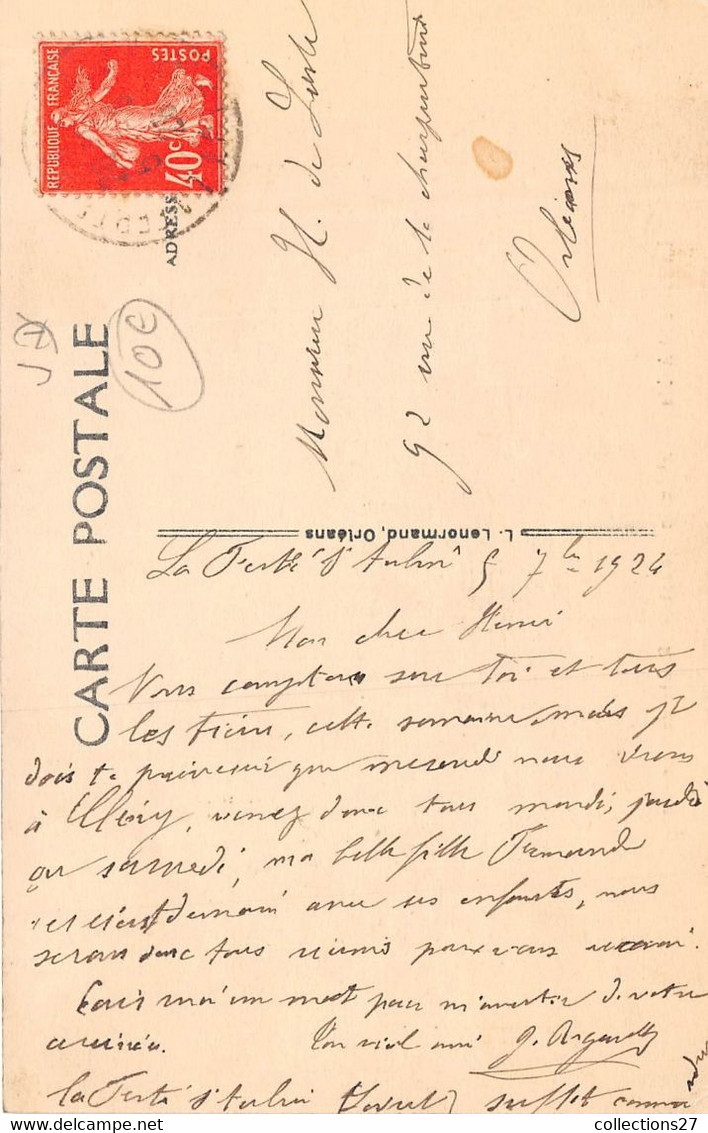 REPUBLIQUE FRANÇAISE
POSTES
40c
ADRESS
CARTE POSTALE
10€
L. Lenormand, Orléans
Monsieur H. de
92 rue de la charpenterie
Orléans
La Ferté St Aubin 5 7bre 1924
Mon cher Henri
Nous comptons sur toi et tous
les tiens, cette semaine, mais je
dois te prévenir que mercredi nous irons
à Cléry, venez donc tous mardi, jeudi
ou samedi, ma belle fille Fernande
demain avec ses enfants, nous
serons donc tous réunis pour vous recevoir.
Ecris moi un mot pour m'avertir de votre
arrivée. Ton vieil ami
La Ferté St Aubin suffit comme
collections27